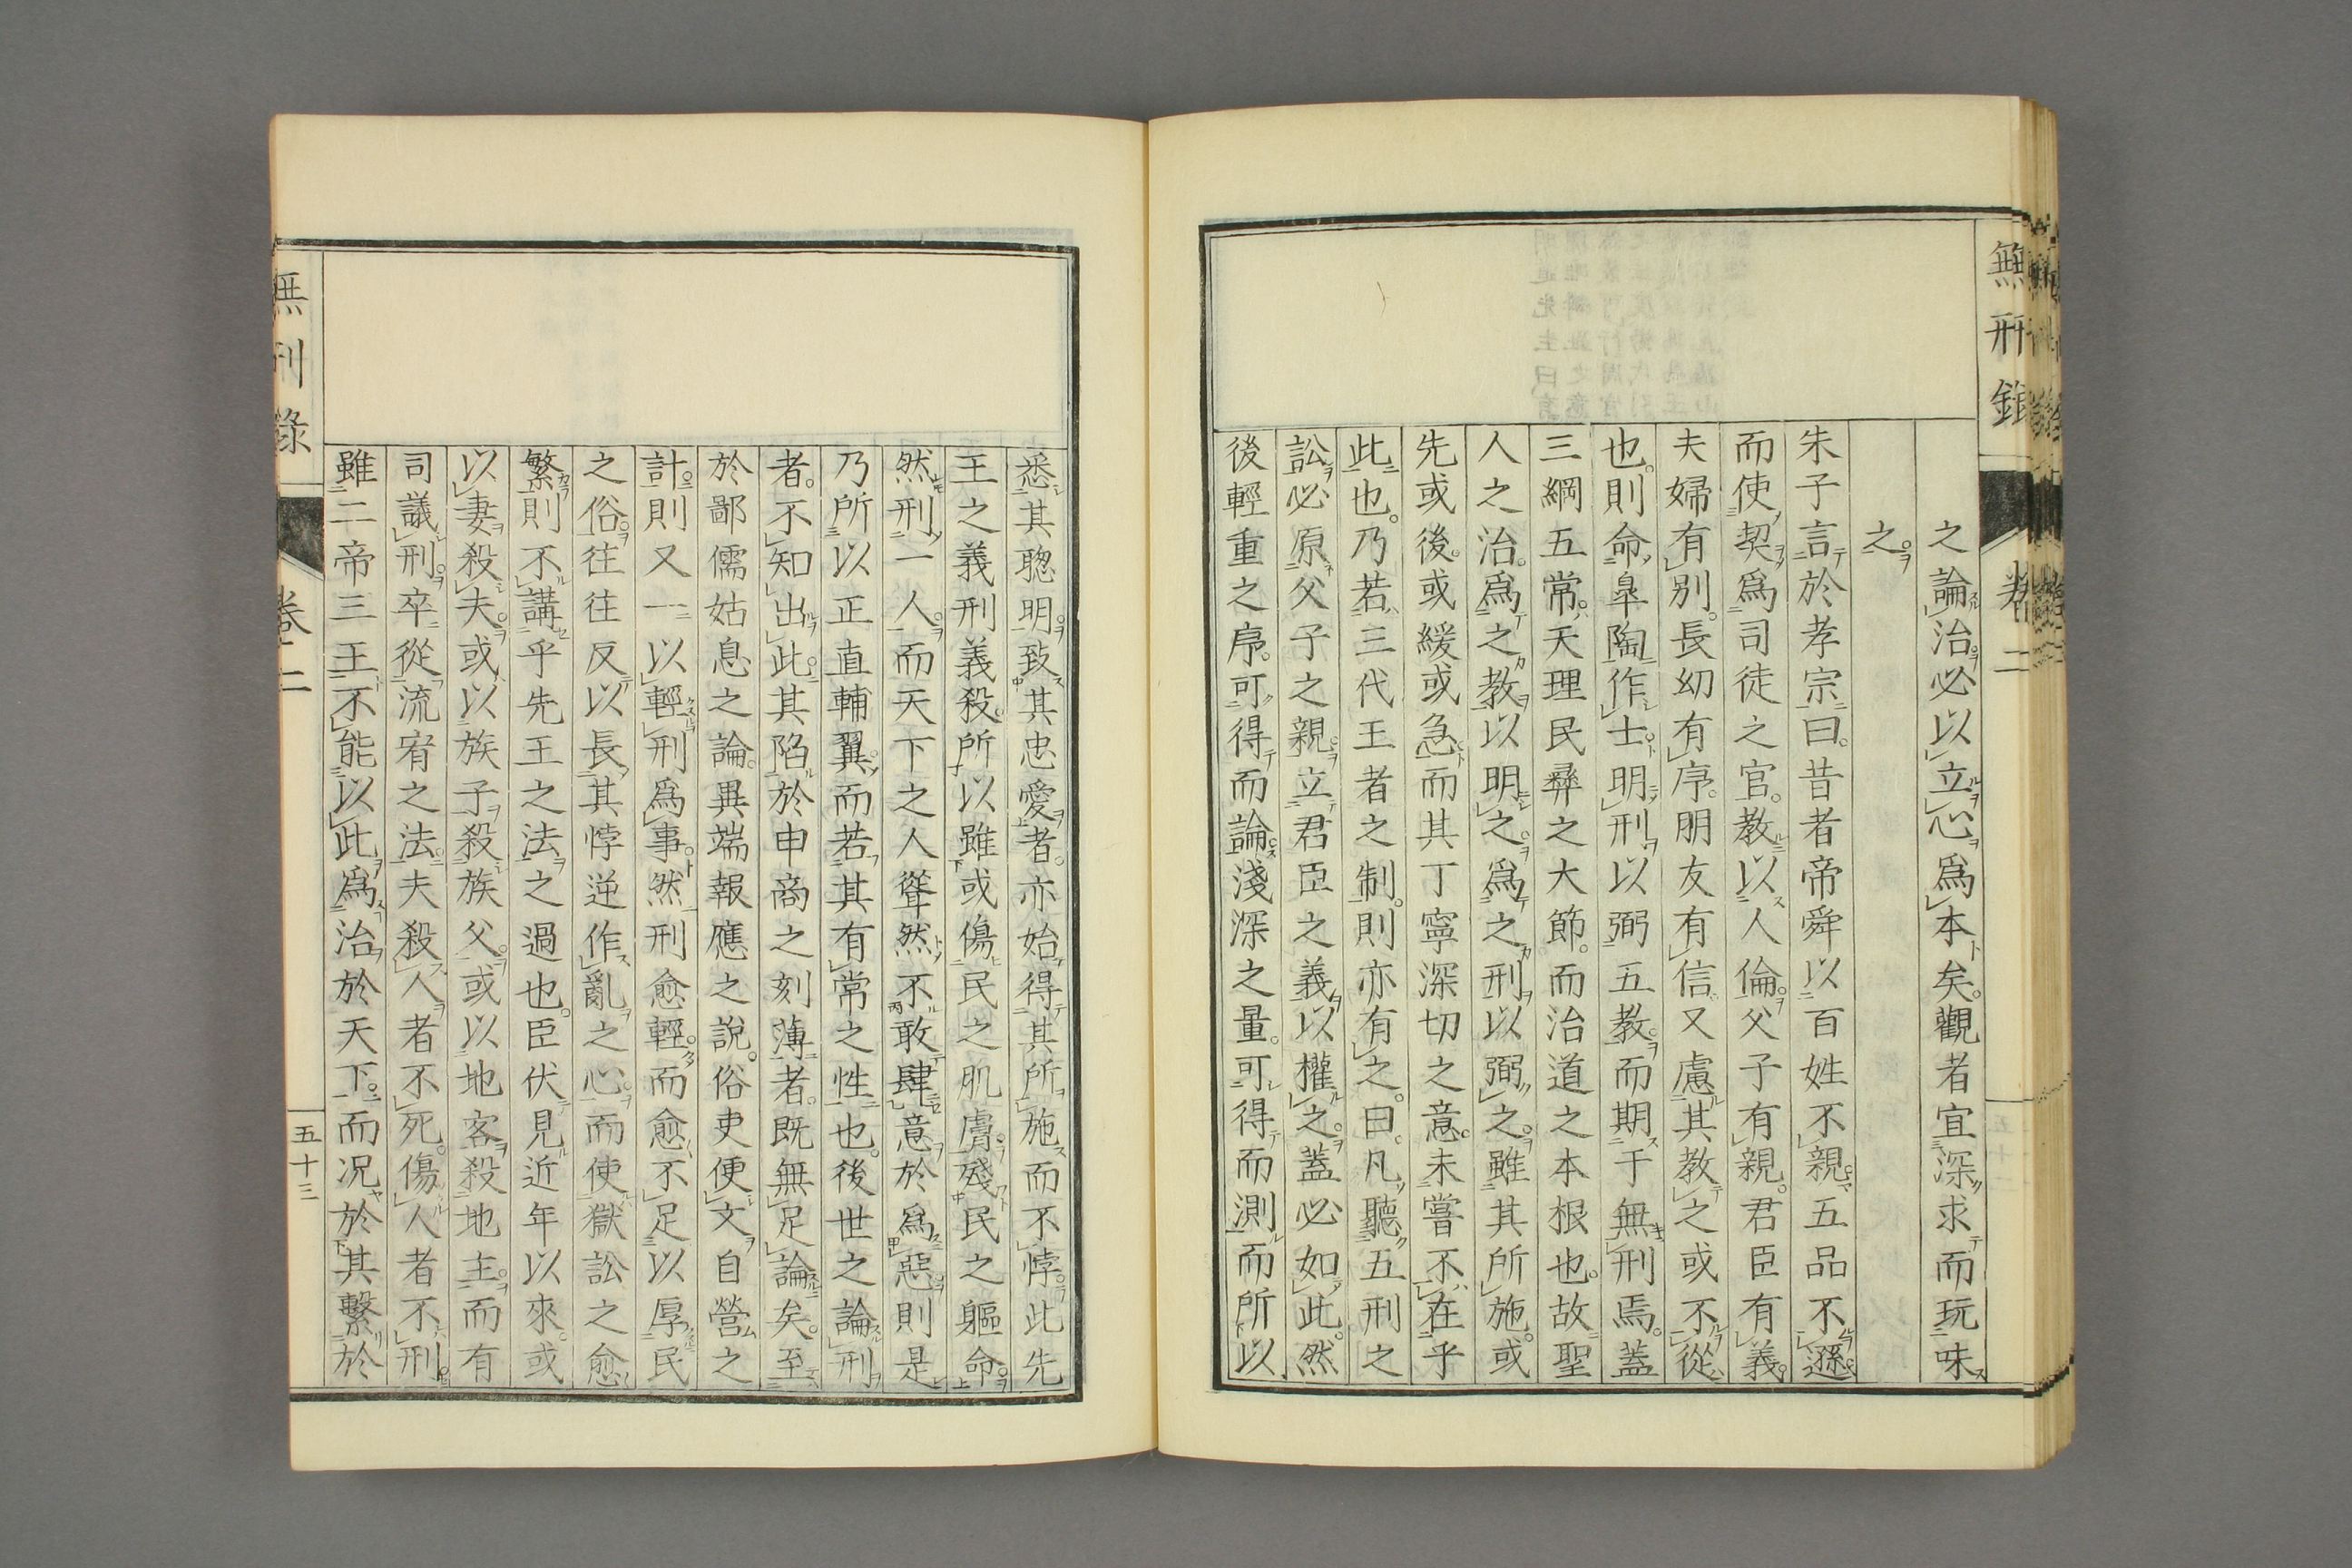 無刑錄
卷二
之論治必以立心爲本矣。觀者宜深求而玩味
之。
朱子言於孝宗曰。昔者帝舜以百姓不親。五品不遜。
而使契爲司徒之官。教以人倫。父子有親。君臣有義。
夫婦有別。長幼有序。朋友有信又慮其教之或不從
也。則命皐陶作士。明刑以弼五教。而期于無刑焉。蓋
三綱五常。天理民彝之大節。而治道之本根也。故聖
人之治。爲之教以明之。爲之刑以弼之。雖其所施。或
先或後。或緩或急。而其丁寧深切之意。未嘗不在乎
此也。乃若三代王者之制。則亦有之。曰。凡聽五刑之
訟必原父子之親。立君臣之義以權之。蓋必如此。然
後輕重之序。可得而論。淺深之量。可得而測而所以
悉其聰明。致其忠愛者。亦始得其所施而不悖。此先
王之義刑義殺。所以雖或傷民之肌膚。殘民之軀命。
然刑一人。而天下之人聳然不敢肆意於爲惡。則是
乃所以正直輔翼。而若其有常之性也。後世之論刑
者。不知出此。其陷於申商之刻薄者。既無足論矣。至
於鄙儒姑息之論。異端報應之說。俗吏便文自營之
計。則又一以輕刑爲事。然刑愈輕。而愈不足以厚民
之俗。往往反以長其悖逆作亂之心。而使獄訟之愈
繁則不講乎先王之法之過也。臣伏見近年以來。或
以妻殺夫。或以族子殺族父。或以地客殺地主。而有
司議刑。卒從流宥之法。夫殺人者不死。傷人者不刑。
雖二帝三王不能以此爲治於天下。而况於其繫於
無刑錄
卷二
五十三